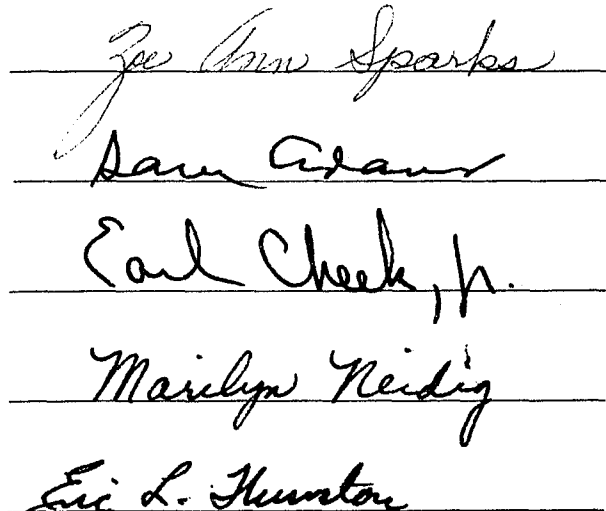 Zoe Ann Sparks
Sam Adams
Earl Cheek, Jr.
Marilyn Neidig
Eric L. Thurston